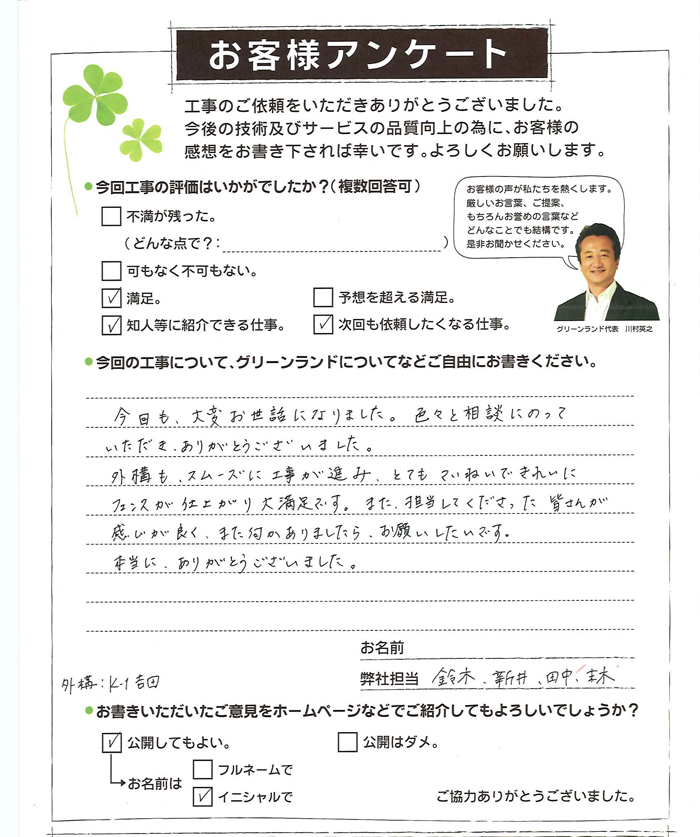 お客様アンケート
工事のご依頼をいただきありがとうございました。
今後の技術及びサービスの品質向上の為に、お客様の
感想をお書き下されば幸いです。よろしくお願いします。
今回工事の評価はいかがでしたか？（複数回答可）
不満が残った。
（どんな点で？：　）
可もなく不可もない。
満足。
予想を超える満足。
知人等に紹介できる仕事。
次回も依頼したくなる仕事。
お客様の声が私たちを熱くします。
厳しいお言葉、ご提案、
もちろんお誉めの言葉など
どんなことでも結構です。
是非お聞かせください。
グリーンランド代表　川村英之
今回の工事について、グリーンランドについてなどご自由にお書きください。
今回も、大変お世話になりました。色々と相談にのって
いただき、ありがとうございました。
外構も、スムーズに工事が進み、とてもていねいできれいに
フェンスが仕上がり大満足です。また、担当してくださった皆さんが
感じが良く、また何かありましたら、お願いしたいです。
本当に、ありがとうございました。
お名前
弊社担当　鈴木、新井、田中、
外構：K-1 吉田
お書きいただいたご意見をホームページなどでご紹介してもよろしいでしょうか？
公開してもよい。
公開はダメ。
お名前は
フルネームで
イニシャルで
ご協力ありがとうございました。